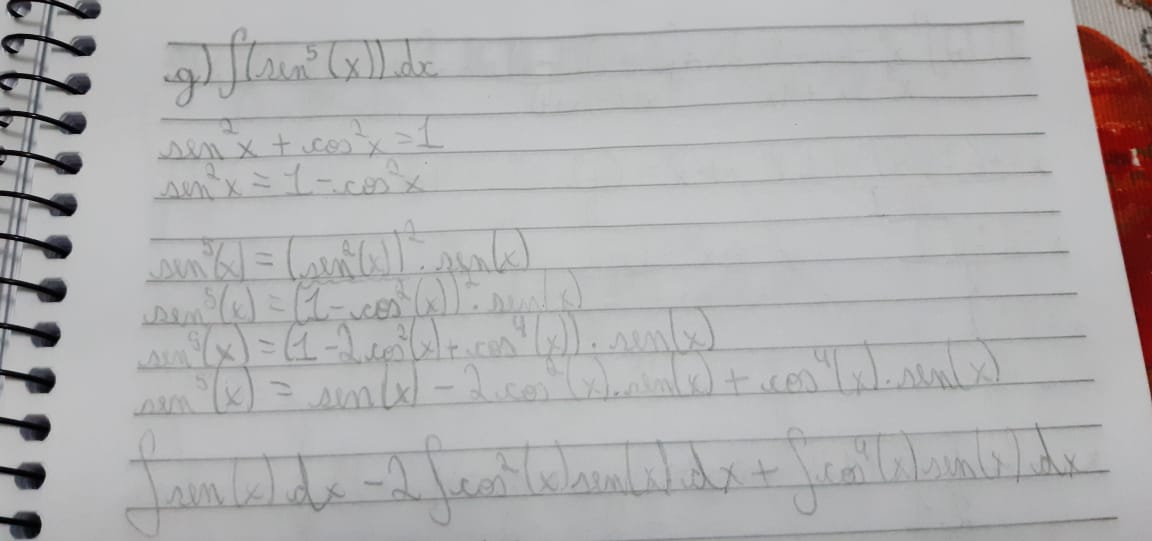 g) ∫(sen⁵(x)) dx
sen²x + cos²x = 1
sen²x = 1 - cos²x
sen⁵(x) = (sen²(x))² . sen(x)
sen⁵(x) = (1 - cos²(x))² . sen(x)
sen⁵(x) = (1 - 2 cos²(x) + cos⁴(x)) . sen(x)
sen⁵(x) = sen(x) - 2 cos²(x) . sen(x) + cos⁴(x) . sen(x)
∫sen(x) dx - 2∫cos²(x) sen(x) dx + ∫cos⁴(x) sen(x) dx